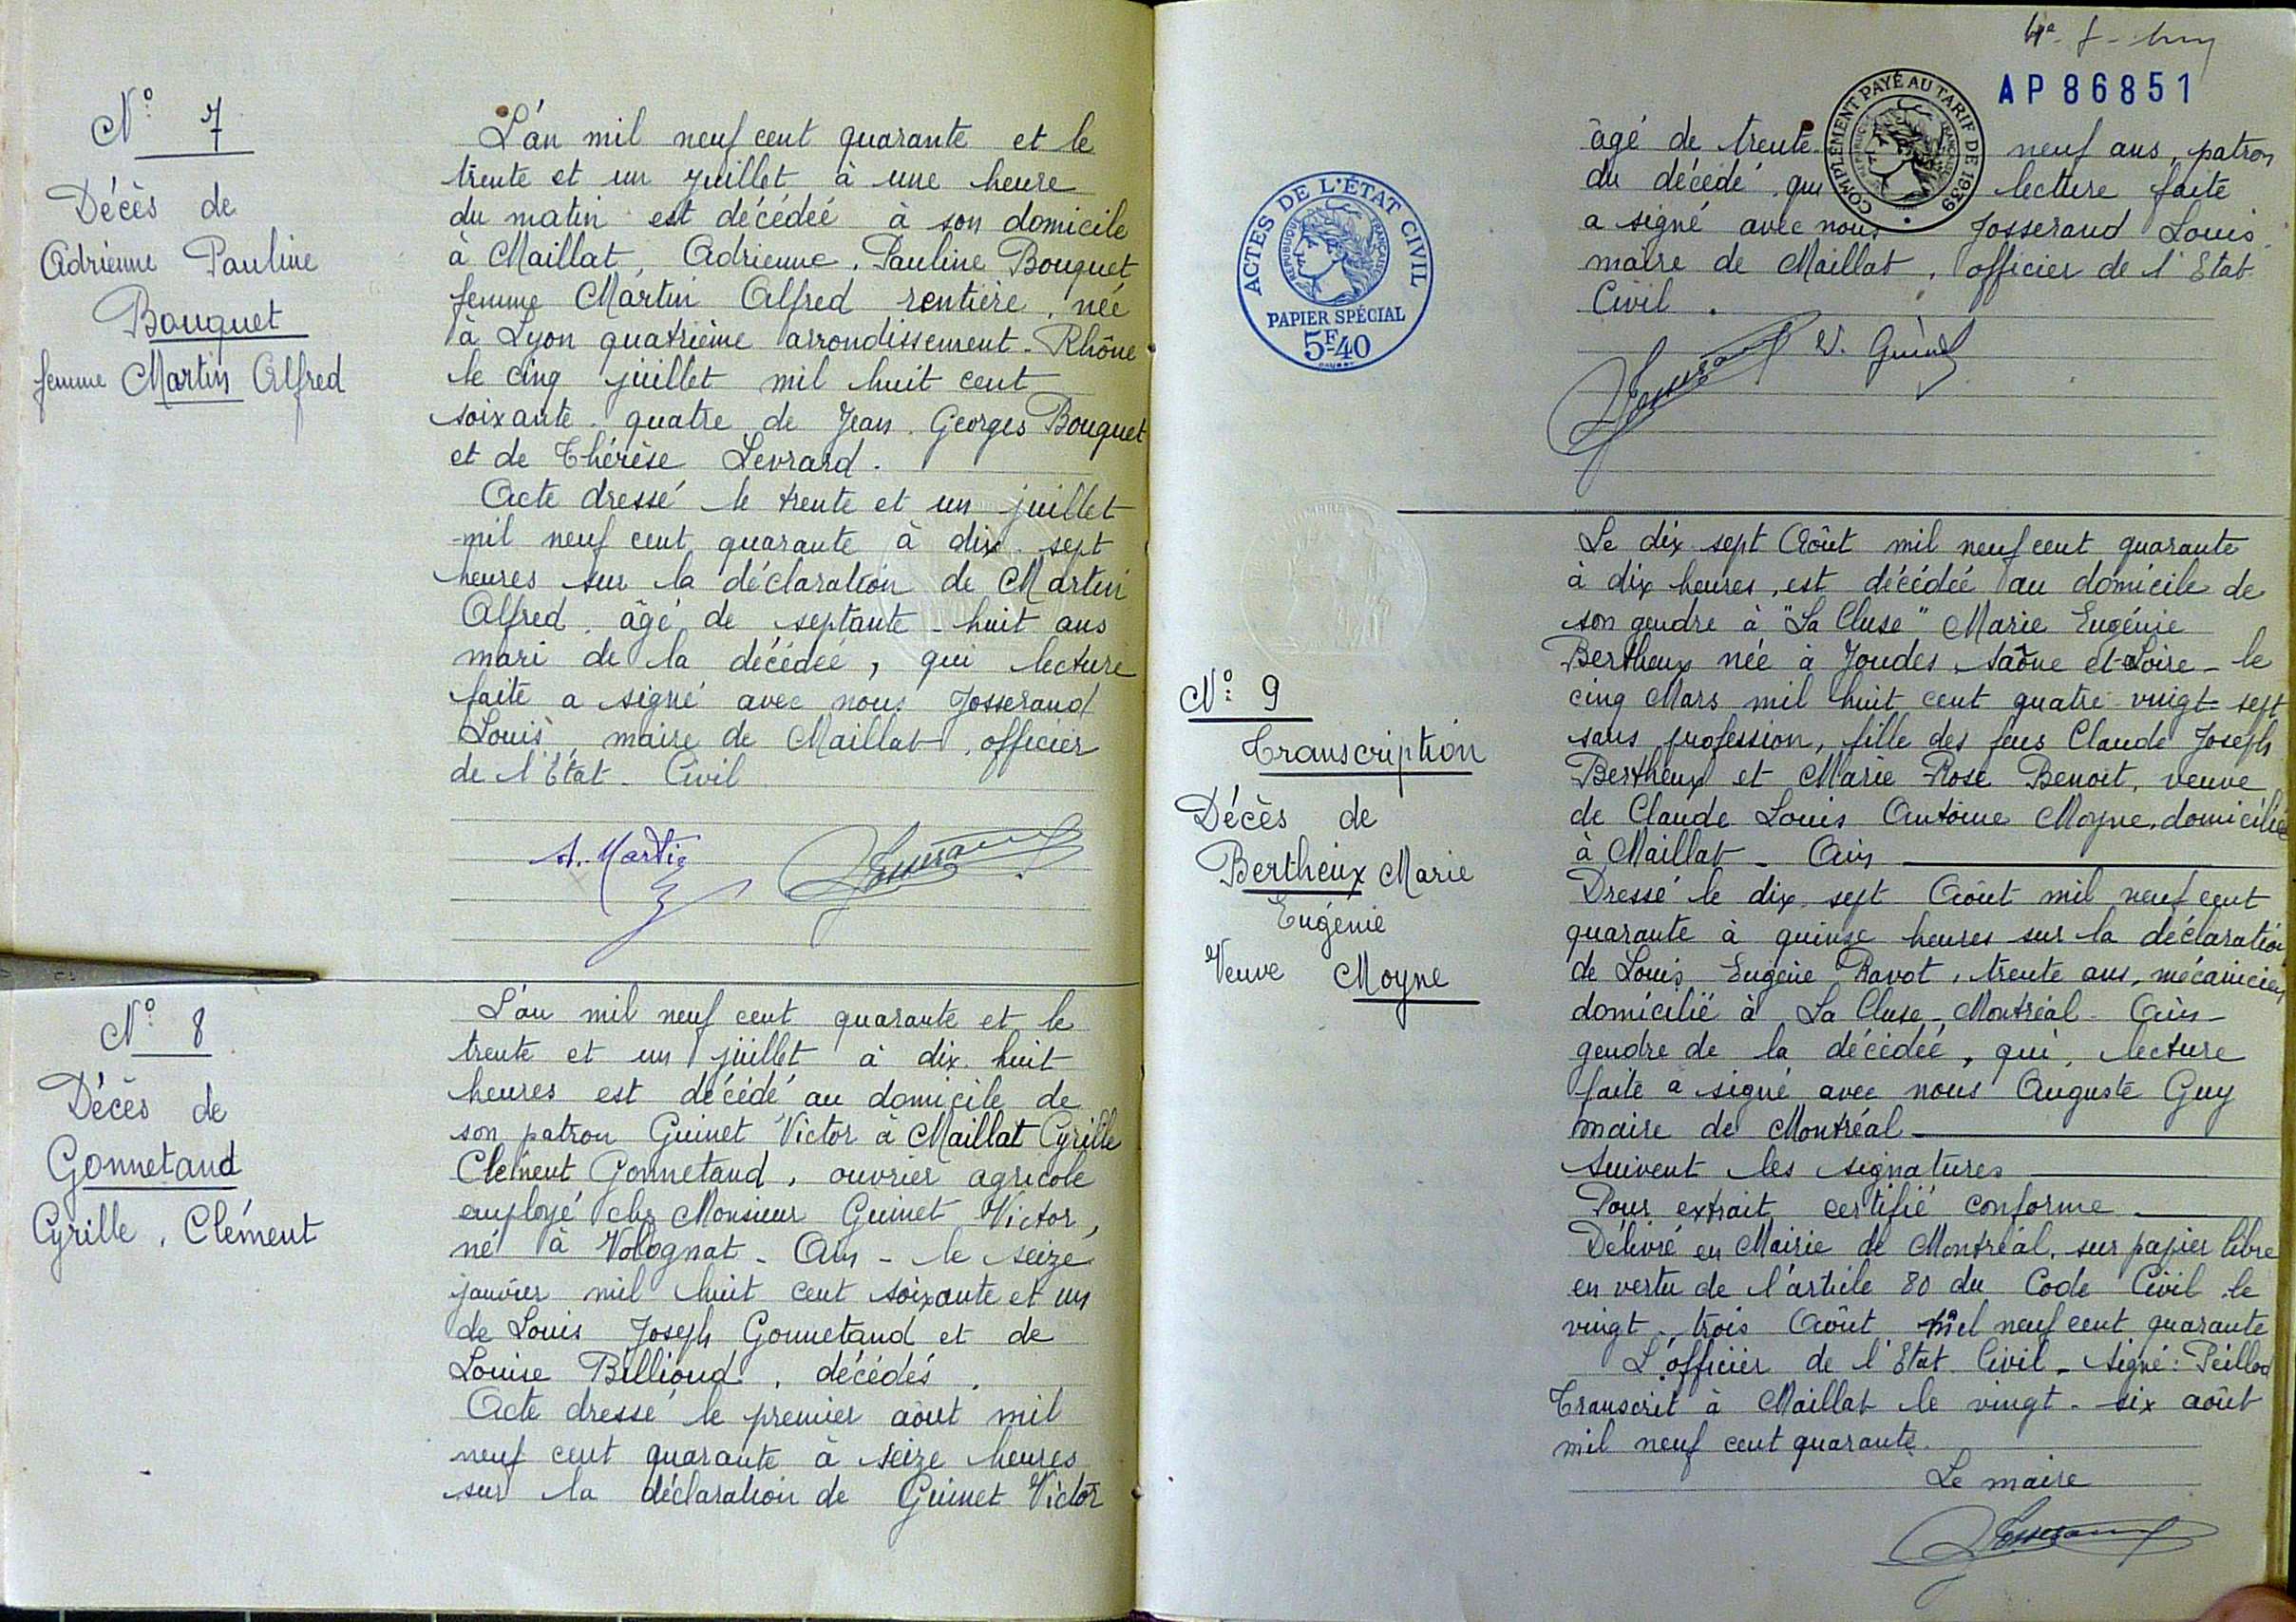 N° 7
Décès de
Adrienne Pauline
Bouquet
femme Martin Alfred
L'an mil neuf cent quarante et le
trente et un juillet à une heure
du matin est décédée à son domicile
à Maillat, Adrienne, Pauline Bouquet
femme Martin Alfred rentière, née
à Lyon quatrième arrondissement - Rhône
le cinq juillet mil huit cent
soixante-quatre de Jean-Georges Bouquet
et de Thérèse Levrard.
Acte dressé le trente et un juillet
mil neuf cent quarante à dix-sept
heures sur la déclaration de Martin
Alfred, âgé de septante-huit ans
mari de la décédée, qui lecture
faite a signé avec nous Josserand
Louis, maire de Maillat, officier
de l'État-Civil
A. Martin
Josserand
N° 8
Décès de
Gonnetand
Cyrille, Clément
L'an mil neuf cent quarante et le
trente et un juillet à dix-huit
heures est décédé au domicile de
son patron Guinet Victor à Maillat Cyrille
Clément Gonnetand, ouvrier agricole
employé chez Monsieur Guinet Victor,
né à Volognat - Ain - le seize
janvier mil huit cent soixante et un
de Louis Joseph Gonnetand et de
Louise Billioud, décédés.
Acte dressé le premier août mil
neuf cent quarante à seize heures
sur la déclaration de Guinet Victor
AP 86851
COMPLÉMENT PAYÉ AU TARIF DE 1939
RÉPUBLIQUE FRANÇAISE
âgé de trente-neuf ans, patron
du décédé, qui lecture faite
a signé avec nous Josserand Louis
maire de Maillat, officier de l'Etat
Civil.
V. Guinet
Josserand
ACTES DE L'ÉTAT CIVIL
RÉPUBLIQUE FRANÇAISE
PAPIER SPÉCIAL
5F40
N° 9
Transcription
Décès de
Bertheux Marie
Eugénie
Veuve Moyne
Le dix-sept Août mil neuf cent quarante
à dix heures, est décédée au domicile de
son gendre à "La Cluse" Marie Eugénie
Bertheux née à Joudes, Saône et-Loire - le
cinq Mars mil huit cent quatre-vingt-sept
sans profession, fille des feus Claude Joseph
Bertheux et Marie-Rose Benoit, veuve
de Claude Louis Antoine Moyne, domiciliée
à Maillat - Ain
Dressé le dix-sept Août mil neuf cent
quarante à quinze heures sur la déclaration
de Louis Eugène Ravot, trente ans, mécanicien
domicilié à La Cluse-Montréal - Ain -
gendre de la décédée, qui, lecture
faite a signé avec nous Auguste Guy
maire de Montréal
Suivent les signatures
Pour extrait certifié conforme
Délivré en Mairie de Montréal, sur papier libre
en vertu de l'article 80 du Code Civil le
vingt-trois Août mil neuf cent quarante
L'officier de l'Etat Civil - Signé: Peillod
Transcrit à Maillat le vingt-six août
mil neuf cent quarante.
Le maire
Josserand